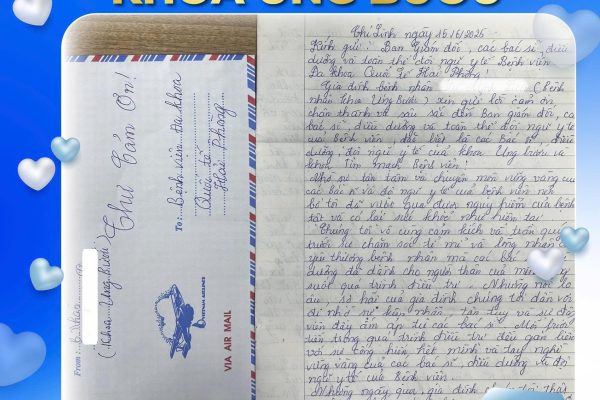 KHOA UNG BƯỚU
Thư Cảm Ơn!
(Khoa Ung Bướu)
From:
To: Bệnh viện Đa khoa
Quốc tế
Hải Phòng
VIETNAM AIRLINES
VIA AIR MAIL
Chí Linh ngày 15/6/2025
Kính gửi: Ban Giám đốc, các bác sĩ, điều
dưỡng và toàn thể đội ngũ y tế Bệnh viện
Đa khoa Quốc Tế Hải Phòng!
Gia đình bệnh nhân (bệnh
nhân Khoa Ung Bướu) xin gửi lời cảm ơn
chân thành và sâu sắc đến Ban giám đốc, các
bác sĩ, điều dưỡng và toàn thể đội ngũ y tế
của bệnh viện, đặc biệt là các bác sĩ, điều
dưỡng, đội ngũ y tế của khoa Ung bướu và
khoa Tim mạch Bệnh viện!
Nhờ sự tận tâm và chuyên môn vững vàng của
các bác sĩ và đội ngũ y tế của bệnh viện nên
bố tôi đã vượt qua được nguy hiểm của bệnh
tật và có lại sức khỏe như hiện tại
Chúng tôi vô cùng cảm kích và trân quý
trước sự chăm sóc tỉ mỉ và lòng nhân ái
yêu thương bệnh nhân mà các bác sĩ
dưỡng đã dành cho người thân của mình
suốt quá trình điều trị. Những nỗi lo
âu, sợ hãi của gia đình chúng tôi dần vơi
đi nhờ sự kiên nhẫn, tận tụy và sự động
viên đầy ấm áp từ các bác sĩ. Mỗi bước
tiến trong quá trình điều trị đều gắn liền
với sự cống hiến hết mình và tay nghề
vững vàng của các bác sĩ, điều dưỡng và đội
ngũ y tế của Bệnh viện.
Những ngày qua, gia đình thật